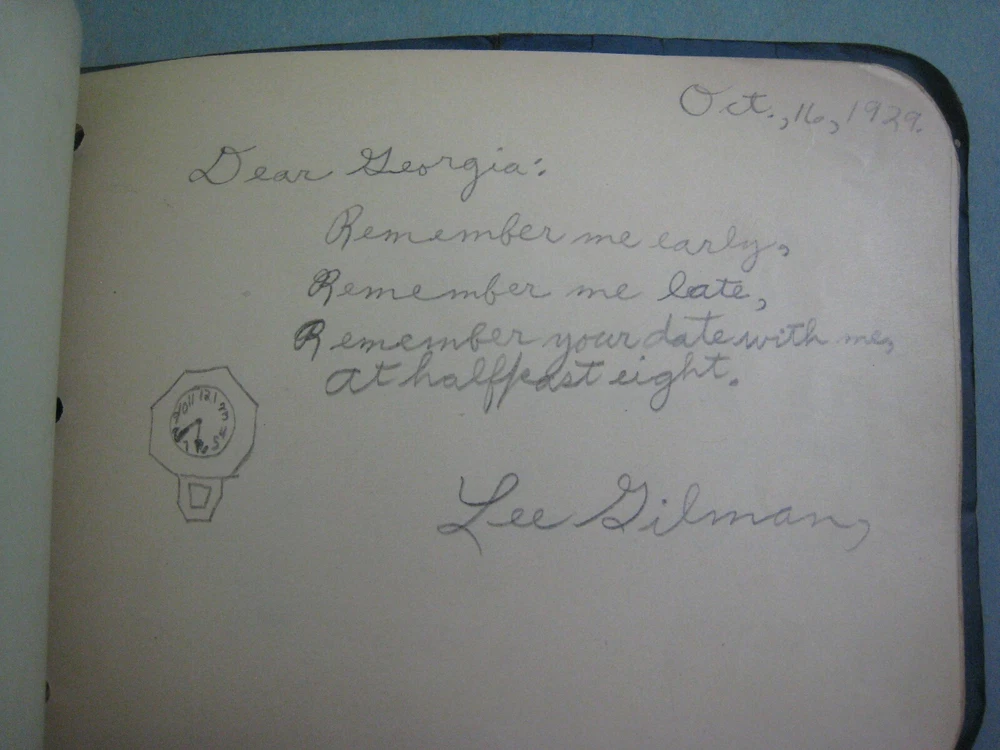 Oct., 16, 1929.
Dear Georgia:
Remember me early,
Remember me late,
Remember your date with me,
at half past eight.
Lee Gilman,
11 12 1